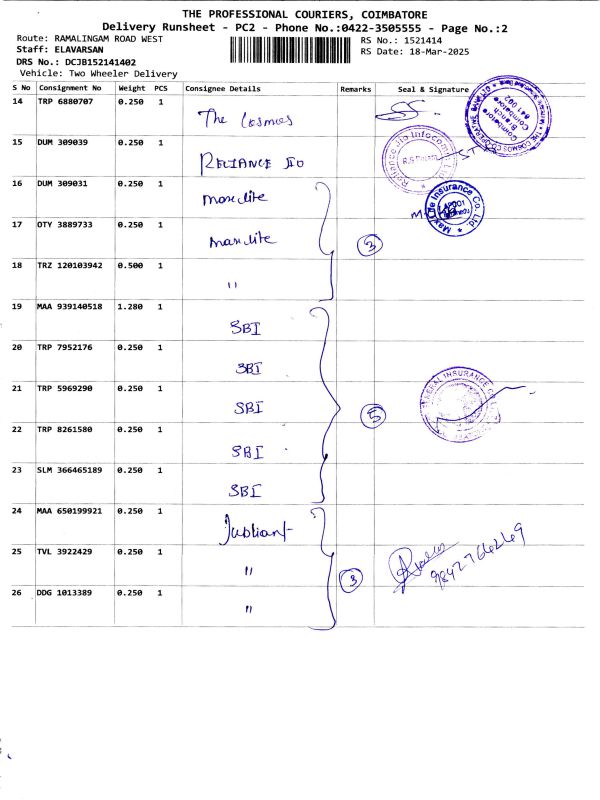 THE PROFESSIONAL COURIERS, COIMBATORE
Delivery Runsheet - PC2 - Phone No.:0422-3505555 - Page No.:2
Route: RAMALINGAM ROAD WEST RS No.: 1521414
Staff: ELAVARSAN RS Date: 18-Mar-2025
DRS No.: DCJB152141402
Vehicle: Two Wheeler Delivery
S No Consignment No Weight PCS Consignee Details Remarks Seal & Signature
14 TRP 6880707 0.250 1 The Cosmos
15 DUM 309039 0.250 1 RELIANCE JIO
16 DUM 309031 0.250 1 Max Life
17 OTY 3889733 0.250 1 Max Life 3
18 TRZ 120103942 0.500 1 "
19 MAA 939140518 1.280 1 SBI
20 TRP 7952176 0.250 1 SBI
21 TRP 5969290 0.250 1 SBI 5
22 TRP 8261580 0.250 1 SBI
23 SLM 366465189 0.250 1 SBI
24 MAA 650199921 0.250 1 Jubliant
25 TVL 3922429 0.250 1 " 3
26 DDG 1013389 0.250 1 "
THE COSMOS COOPERATIVE BANK LTD
Coimbatore
Branch
Coimbatore
641 002
Reliance Jio Infocomm
R.S.Puram
Max Life Insurance Co. Ltd.
GENERAL INSURANCE CO
9842766269